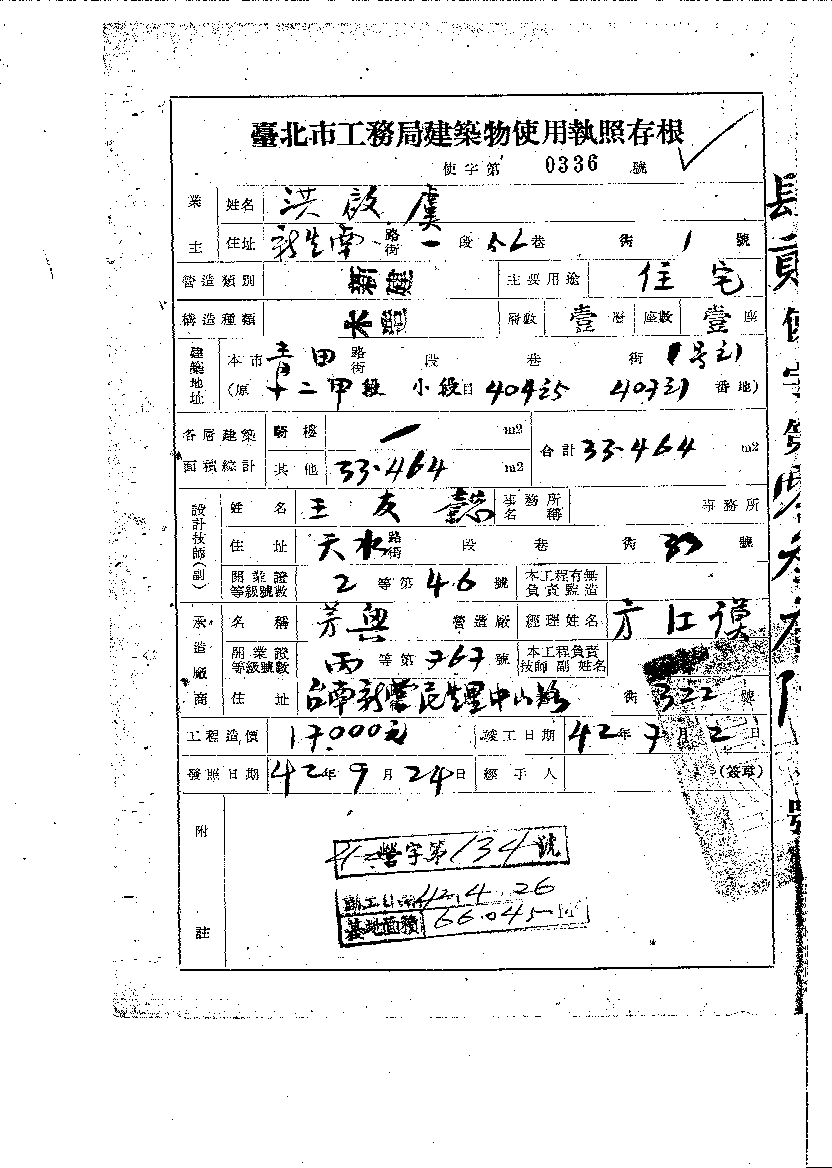 臺北市工務局建築物使用執照存根
使字第 0336 號
業主 姓名 洪啟虞
住址 新生南路街一段52巷 街1號
營造類別 新建 主要用途 住宅
構造種類 木造 層數 壹層 座數 壹座
建築地址 本市青田路街 段 巷 街1号之1
(原十二甲段 小段目404之5 407之1番地)
各層建築面積綜計 騎樓 / m2 合計33.464 m2
其他 33.464 m2
設計技師(副) 姓名 王友 事務所名稱 事務所
住址 天水路街 段 巷 街33號
開業證等級號數 2等第46號 本工程有無負責監造
承造廠商 名稱 芳興營造廠 經理姓名 方江漢
開業證等級號數 丙等第767號 本工程負責技師副姓名
住址 台南新營民生里中山路 街322號
工程造價 17.000元 竣工日期 42年7月2日
發照日期 42年9月24日 經手人 (簽章)
附註
營字第134號
42.4.26
基地面積 66.045